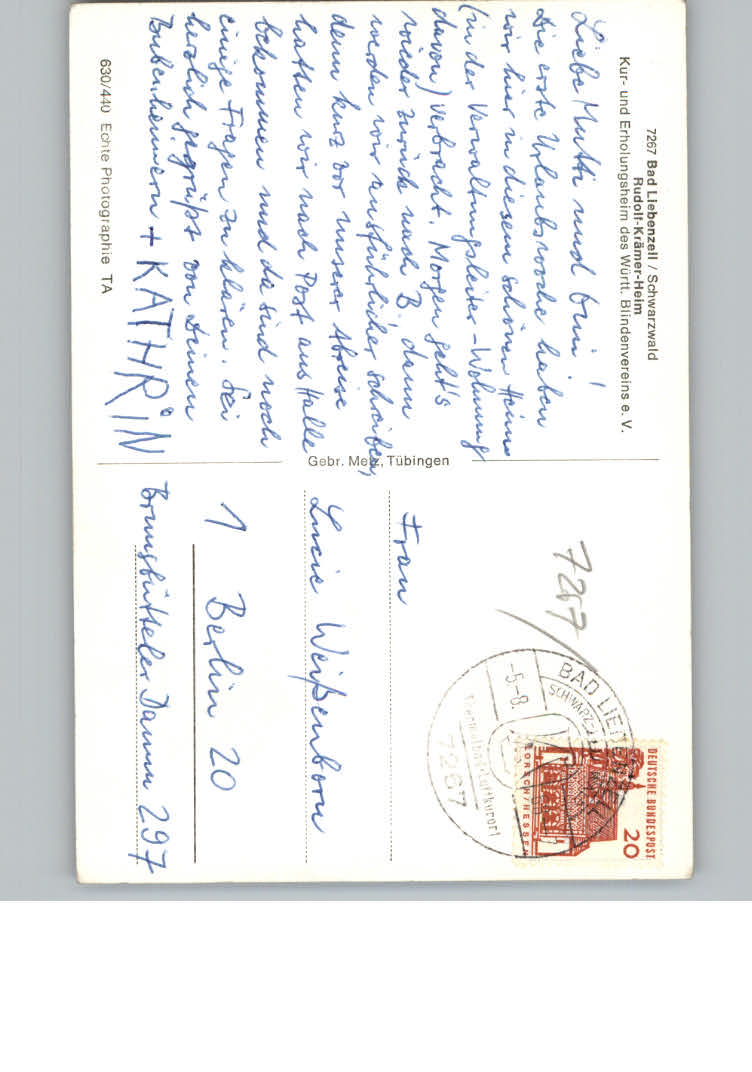 7267 Bad Liebenzell / Schwarzwald
Rudolf-Krämer-Heim
Kur- und Erholungsheim des Württ. Blindenvereins e. V.
Liebe Mutti und Omi!
Die erste Urlaubswoche haben
wir hier in diesem schönen Heim
(in der Verwaltungsleiter-Wohnung
davon) verbracht. Morgen geht's
wieder zurück nach B., dann
werden wir ausführlicher schreiben,
denn kurz vor unserer Abreise
hatten wir noch Post aus Halle
bekommen und da sind noch
einige Fragen zu klären. Sei
herzlich gegrüßt von Deinen
Bubenheimern + KATHRIN
630/440 Echte Photographie TA
Gebr. Metz, Tübingen
7267
BAD LIEBENZELL
SCHWARZWALD
-5.-8.
7267
DEUTSCHE BUNDESPOST
20
LORSCH/HESSEN
Frau
Lucie Weißenborn
1 Berlin 20
Brunsbütteler Damm 297